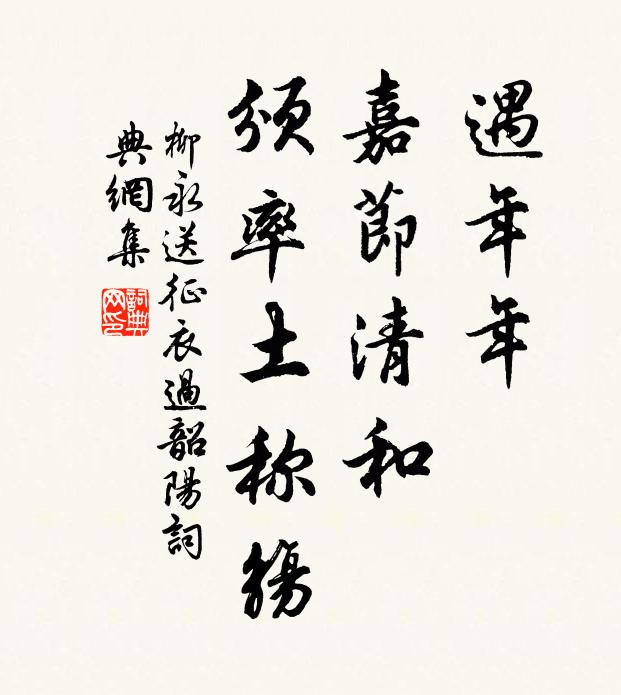 遇年年
嘉節清和
頒率土称觴
柳永送征衣過韶陽詞
典網集
詞典網印